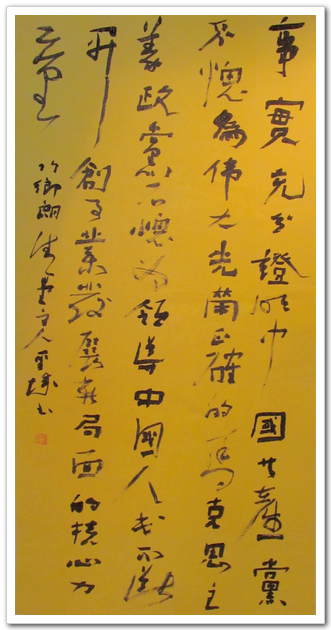 事實充分證明中國共產黨
不愧為偉大光榮正確的馬克思主
義政黨不愧为領導中國人民不斷
開創事業發展新局面的核心力
量
竹鄉 主人 书